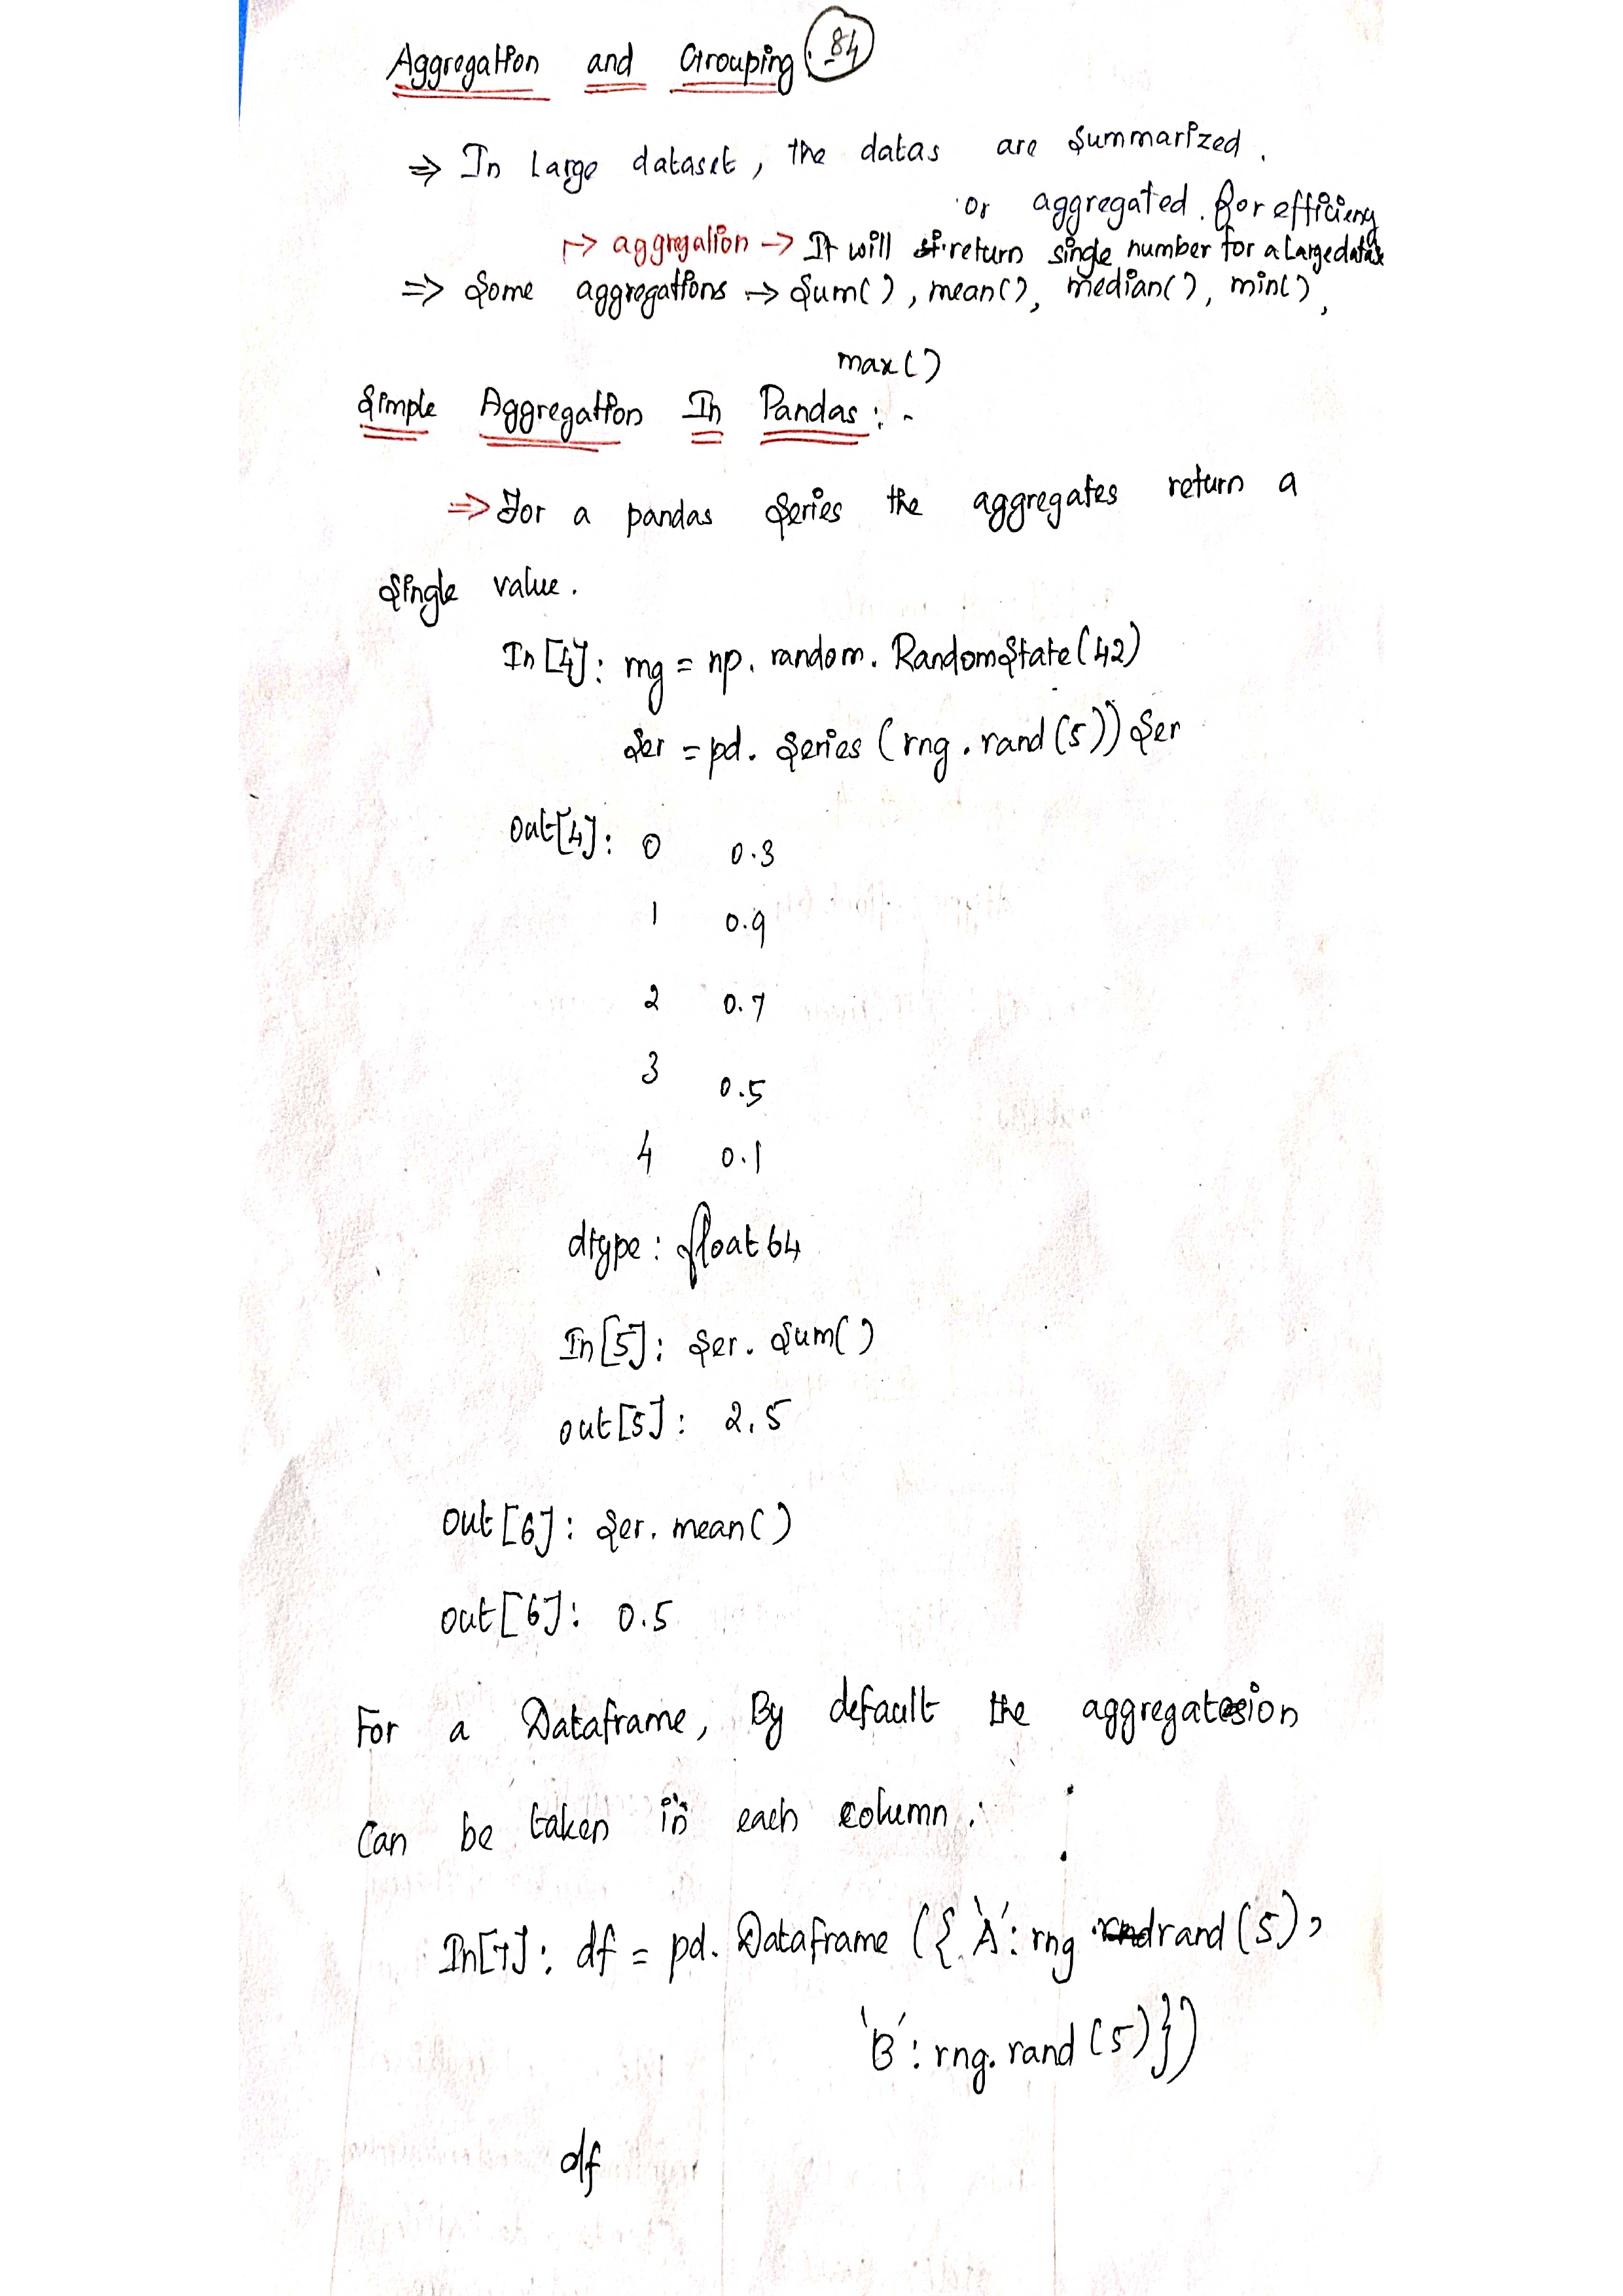 Aggregation and Grouping. 84
⇒ In Large dataset, the datas are summarized.
or aggregated. for efficieny
↱ aggregation → It will return single number for a Large datas
⇒ Some aggregations → Sum(), mean(), median(), min(),
max()
Simple Aggregation In Pandas: -
⇒ For a pandas Series the aggregates return a
Single value.
In[4]: rng = np. random. RandomState(42)
Ser = pd. Series (rng. rand (5)) Ser
Out[4]: 0 0.3
1 0.9
2 0.7
3 0.5
4 0.1
dtype: float64
In[5]: Ser. Sum()
out[5]: 2.5
Out[6]: Ser. mean()
out[6]: 0.5
For a Dataframe, By default the aggregatesion
Can be taken in each column.
In[7]: df = pd. Dataframe ({ 'A': rng rand (5),
'B': rng. rand (5)})
df